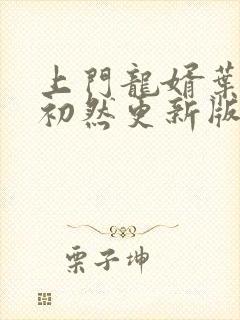 上門龍婿葉
初然更新版
栗子坤